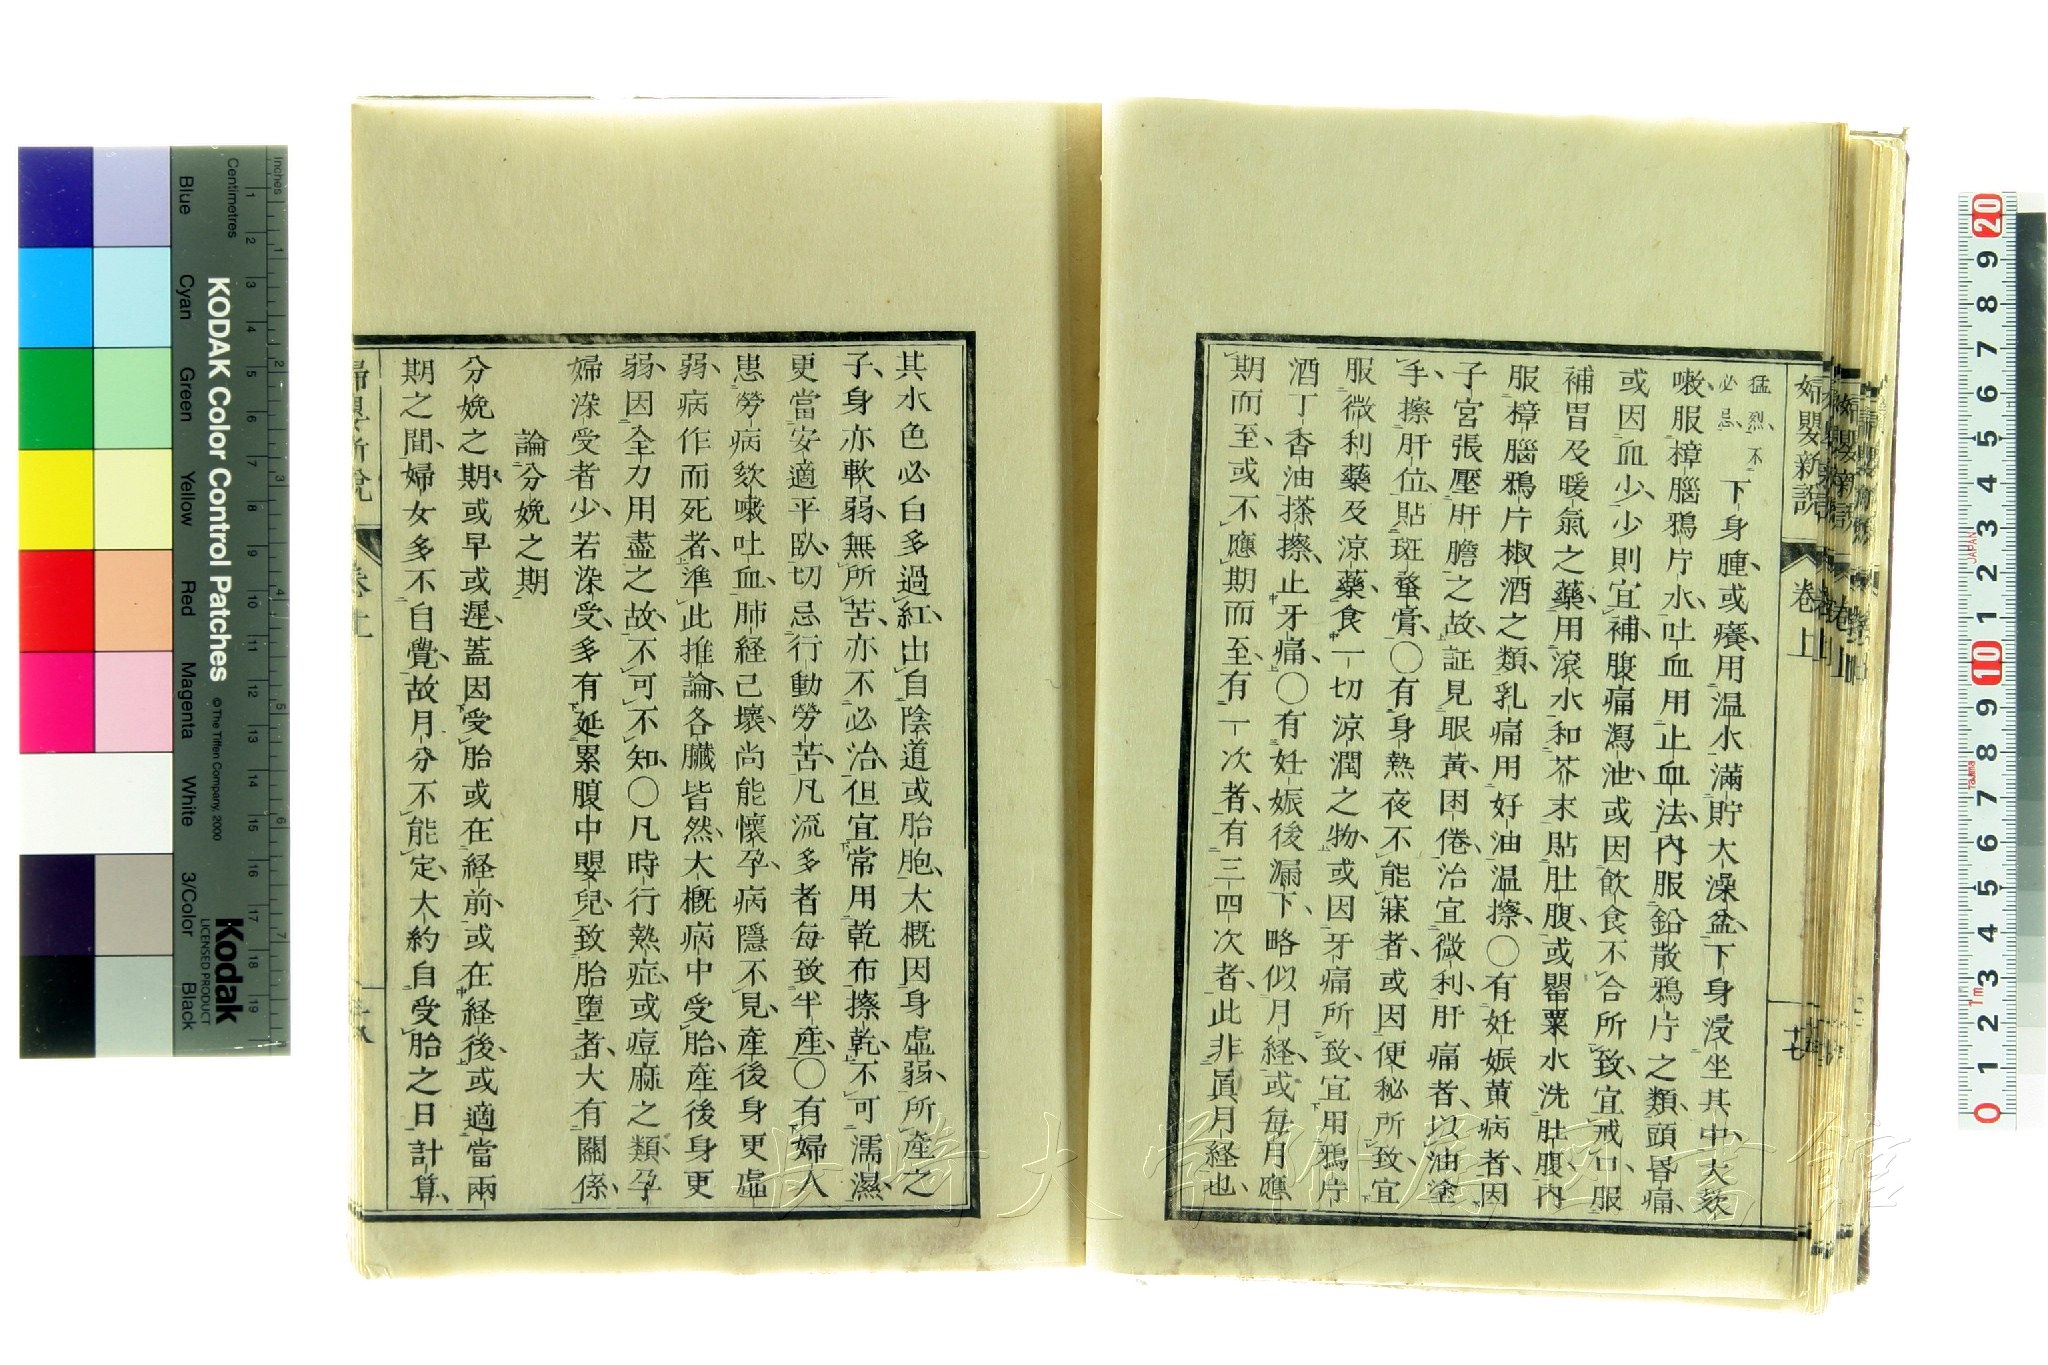 婦嬰新說 卷上 十七
猛烈、不
必忌、
下身腫或癢用温水滿貯大澡盆、下身浸坐其中、大欬
嗽、服樟腦鴉片水、吐血用止血法、內服鉛散鴉片之類、頭昏痛、
或因血少、少則宜補、腹痛瀉泄、或因飲食不合所致、宜戒口、服
補胃及暖氣之藥、用滾水和芥末貼肚腹、或罌粟水洗肚腹、內
服樟腦鴉片椒酒之類、乳痛用好油温擦、〇有妊娠黃病者、因
子宮張壓肝膽之故、証見眼黃困倦、治宜微利、肝痛者、以油塗
手、擦肝位、貼斑蝥膏、〇有身熱夜不能寐者、或因便秘所致、宜
服微利藥及涼藥、食一切涼潤之物、或因牙痛所致、宜用鴉片
酒丁香油搽擦、止牙痛、〇有妊娠後漏下、略似月経、或每月應
期而至、或不應期而至、有一次者、有三四次者、此非眞月経也、
其水色必白多過紅、出自陰道或胎胞、大概因身虛弱、所產之
子、身亦軟弱、無所苦、亦不必治、但宜常用乾布擦乾、不可濡濕、
更當安適平臥、切忌行動勞苦、凡流多者每致半產、〇有婦人
患勞病欬嗽吐血、肺経已壞、尚能懷孕、病隱不見、產後身更虛
弱、病作而死者、準此推論、各臟皆然、大概病中受胎、產後身更
弱、因全力用盡之故、不可不知、〇凡時行熱症、或痘麻之類、孕
婦染受者少、若染受、多有延累腹中嬰兒、致胎墮者、大有關係、
論分娩之期
分娩之期、或早或遲、蓋因受胎或在経前、或在経後、或適當兩
期之間、婦女多不自覺、故月分不能定、大約自受胎之日計算、
婦嬰新說 卷上
KODAK Color Control Patches
© The Tiffen Company, 2000
Kodak
LICENSED PRODUCT
Inches
Centimetres
Blue
Cyan
Green
Yellow
Red
Magenta
White
3/Color
Black
長崎大学附属図書館